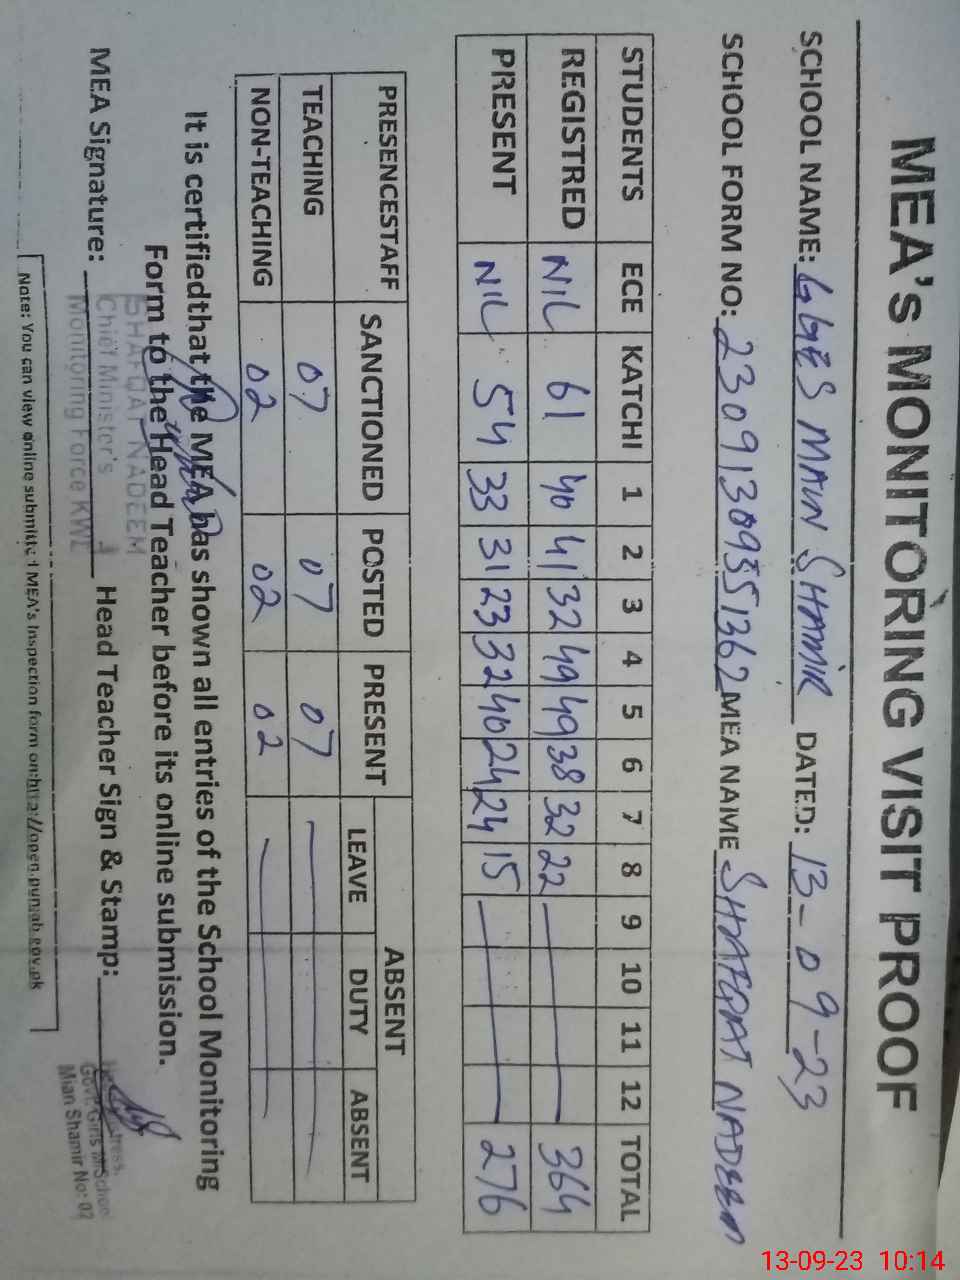 MEA's MONITORING VISIT PROOF
SCHOOL NAME: GGES MAUN SHAMIR DATED: 13-09-23
SCHOOL FORM NO: 230913093551362 MEA NAME SHAFQAT NADEEM
STUDENTS ECE KATCHI 1 2 3 4 5 6 7 8 9 10 11 12 TOTAL
REGISTRED NIL 61 40 41 32 49 49 38 32 22 364
PRESENT NIL 54 33 31 23 32 40 24 24 15 276
PRESENCESTAFF SANCTIONED POSTED PRESENT ABSENT
LEAVE DUTY ABSENT
TEACHING 07 07 07
NON-TEACHING 02 02 02
It is certifiedthat the MEA has shown all entries of the School Monitoring
Form to the Head Teacher before its online submission.
SHAFQAT NADEEM
Chief Minister's
Monitoring Force KWL
MEA Signature: Head Teacher Sign & Stamp:
Govt. Girls M/School
Mian Shamir No: 02
Note: You can view online submitted MEA's Inspection form on:http://open.punjab.gov.pk
13-09-23 10:14